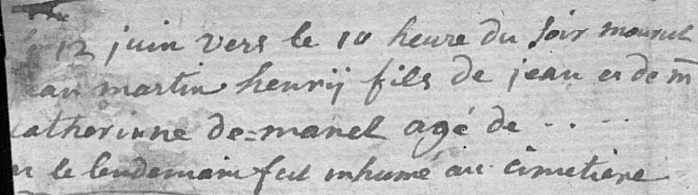 12 juin vers le 10 heure du soir mourut
jean martin henrij fils de jean et de m
catherinne de=manel agé de . . .
et le lendemain fut inhumé au cimetiere